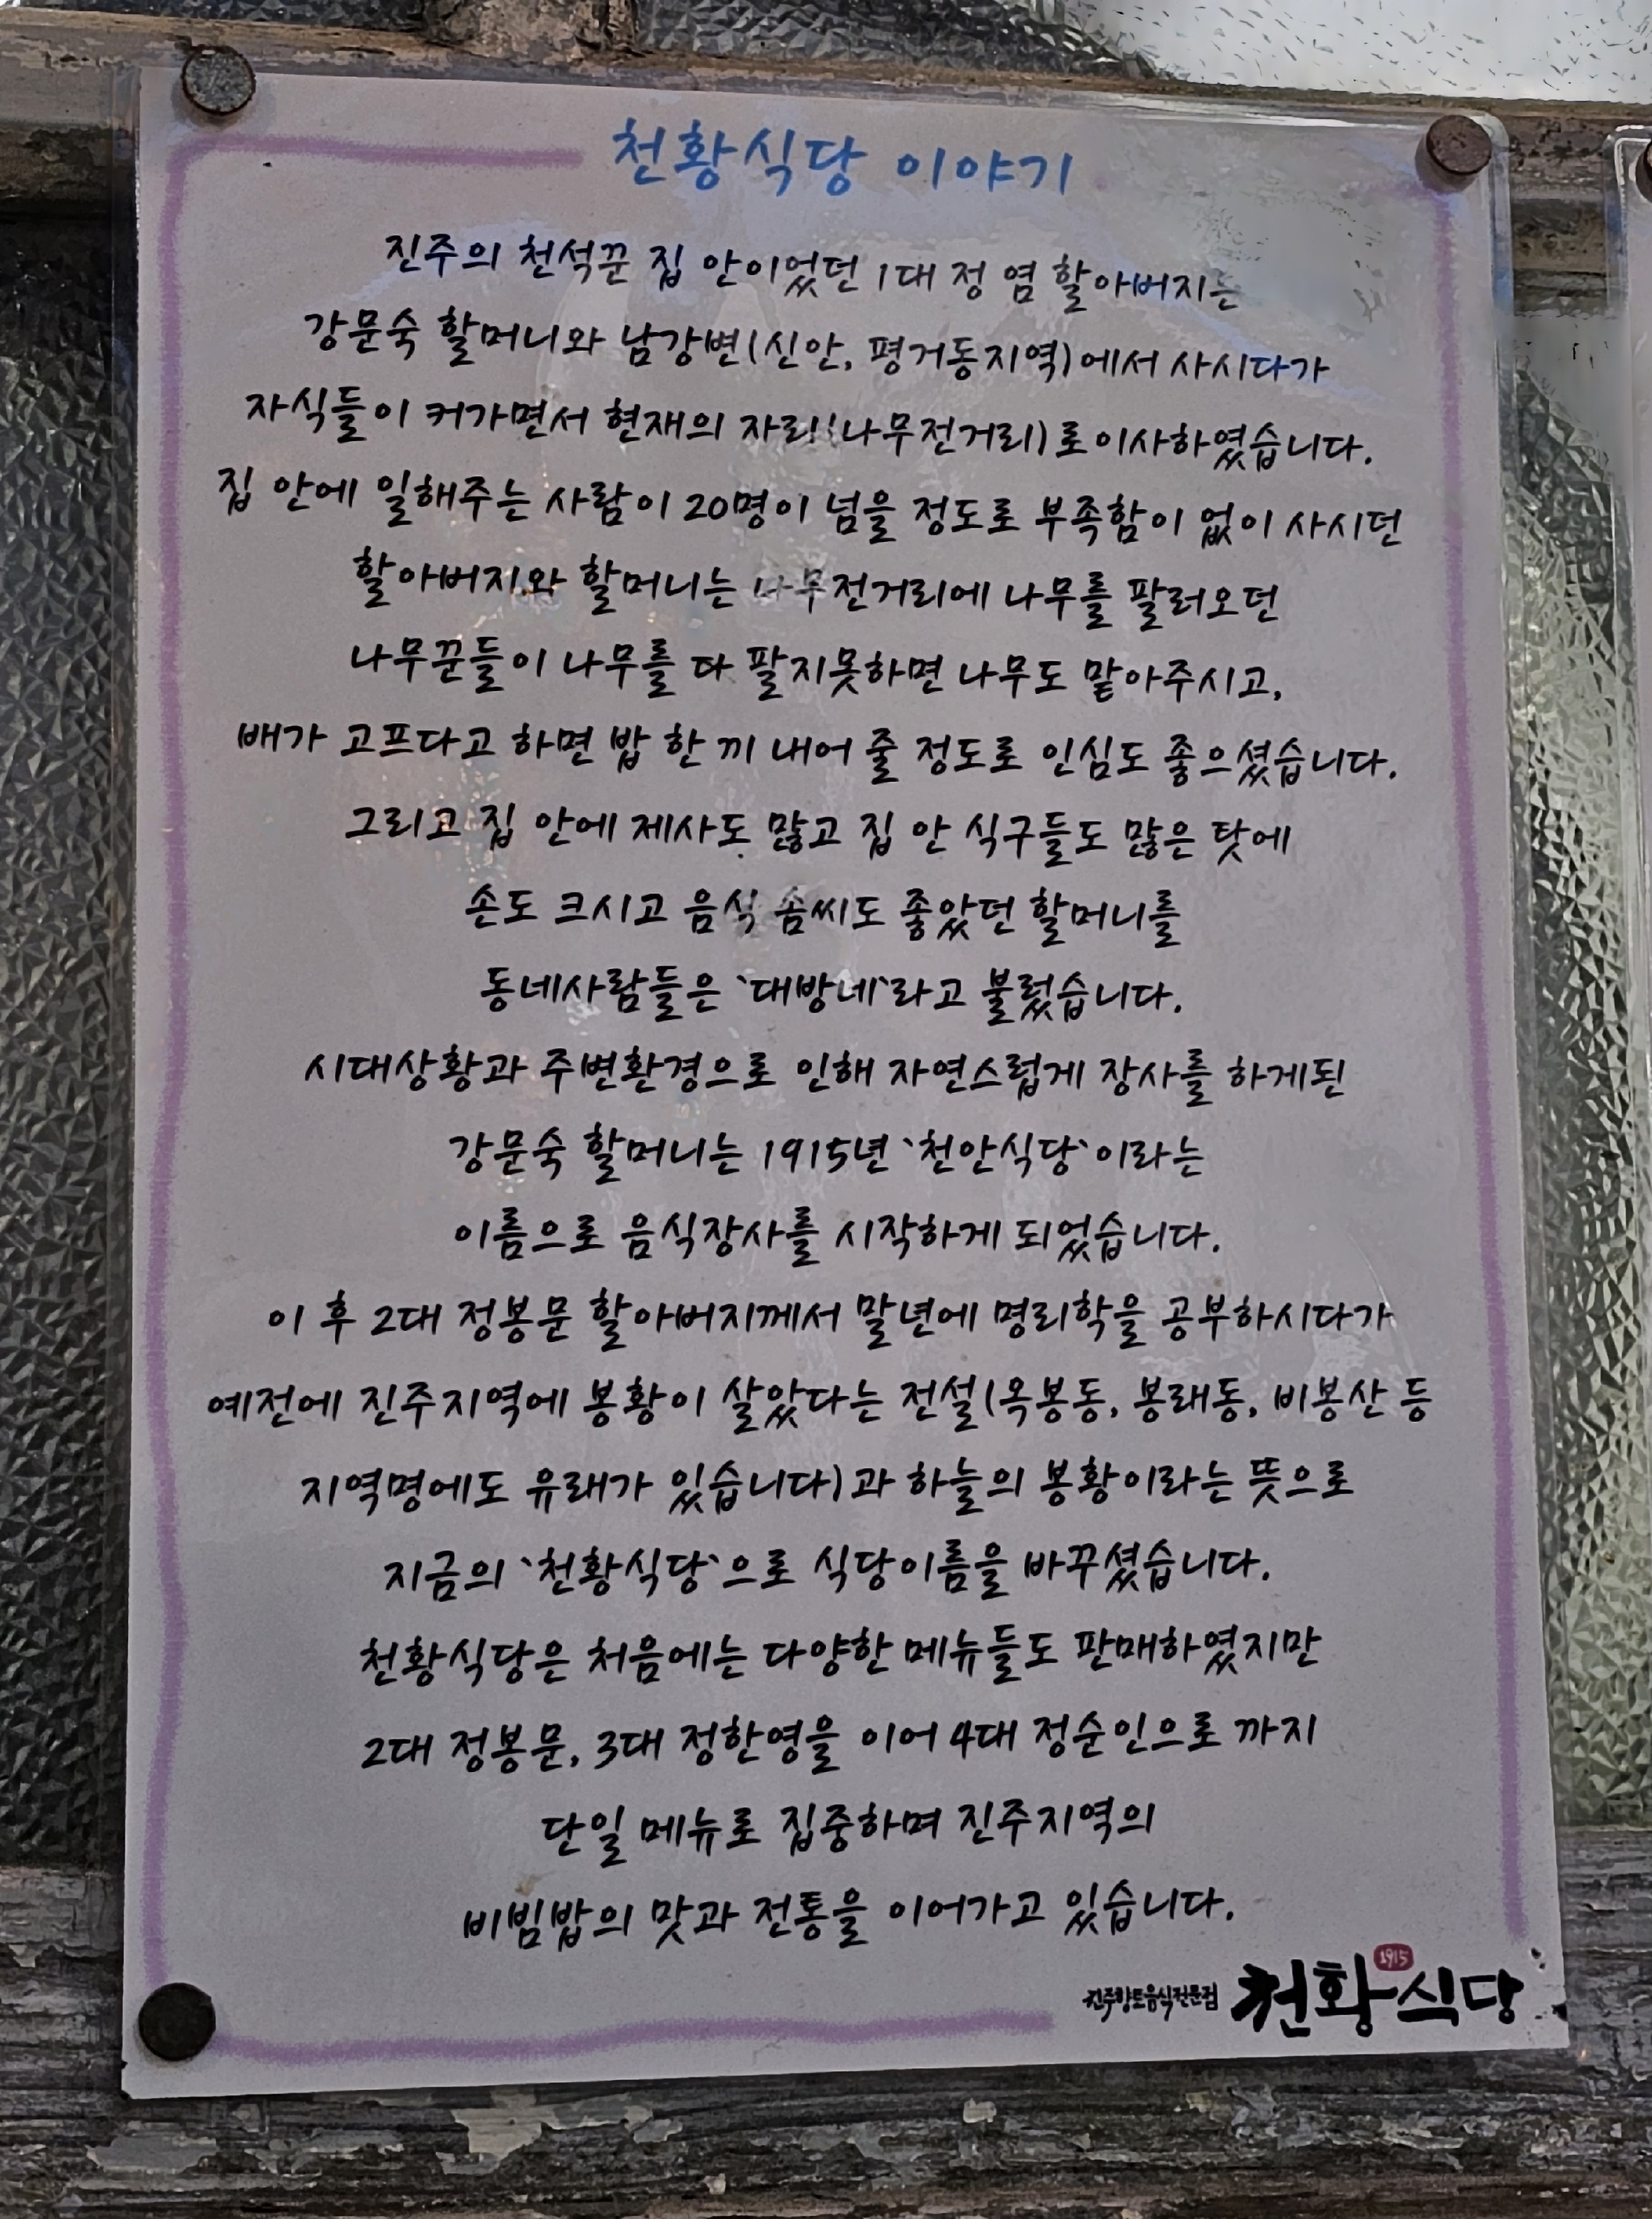 천황식당 이야기
진주의 천석꾼 집 안이었던 1대 정 염 할아버지는
강문숙 할머니와 남강변(신안, 평거동지역)에서 사시다가
자식들이 커가면서 현재의 자리(나무전거리)로이사하였습니다.
집 안에 일해주는 사람이 20명이 넘을 정도로 부족함이 없이 사시던
할아버지와 할머니는 나무전거리에 나무를 팔러오던
나무꾼들이 나무를 다 팔지못하면 나무도 맡아주시고,
배가 고프다고 하면 밥 한 끼 내어 줄 정도로 인심도 좋으셨습니다.
그리고 집 안에 제사도 많고 집 안 식구들도 많은 탓에
손도 크시고 음식 솜씨도 좋았던 할머니를
동네사람들은 `대방네`라고 불렀습니다.
시대상황과 주변환경으로 인해 자연스럽게 장사를 하게된
강문숙 할머니는 1915년 `천안식당`이라는
이름으로 음식장사를 시작하게 되었습니다.
이 후 2대 정봉문 할아버지께서 말년에 명리학을 공부하시다가
예전에 진주지역에 봉황이 살았다는 전설(옥봉동, 봉래동, 비봉산 등
지역명에도 유래가 있습니다)과 하늘의 봉황이라는 뜻으로
지금의 `천황식당`으로 식당이름을 바꾸셨습니다.
천황식당은 처음에는 다양한 메뉴들도 판매하였지만
2대 정봉문, 3대 정한영을 이어 4대 정순인으로 까지
단일 메뉴로 집중하며 진주지역의
비빔밥의 맛과 전통을 이어가고 있습니다.
진주향토음식전문점 천황식당 1915